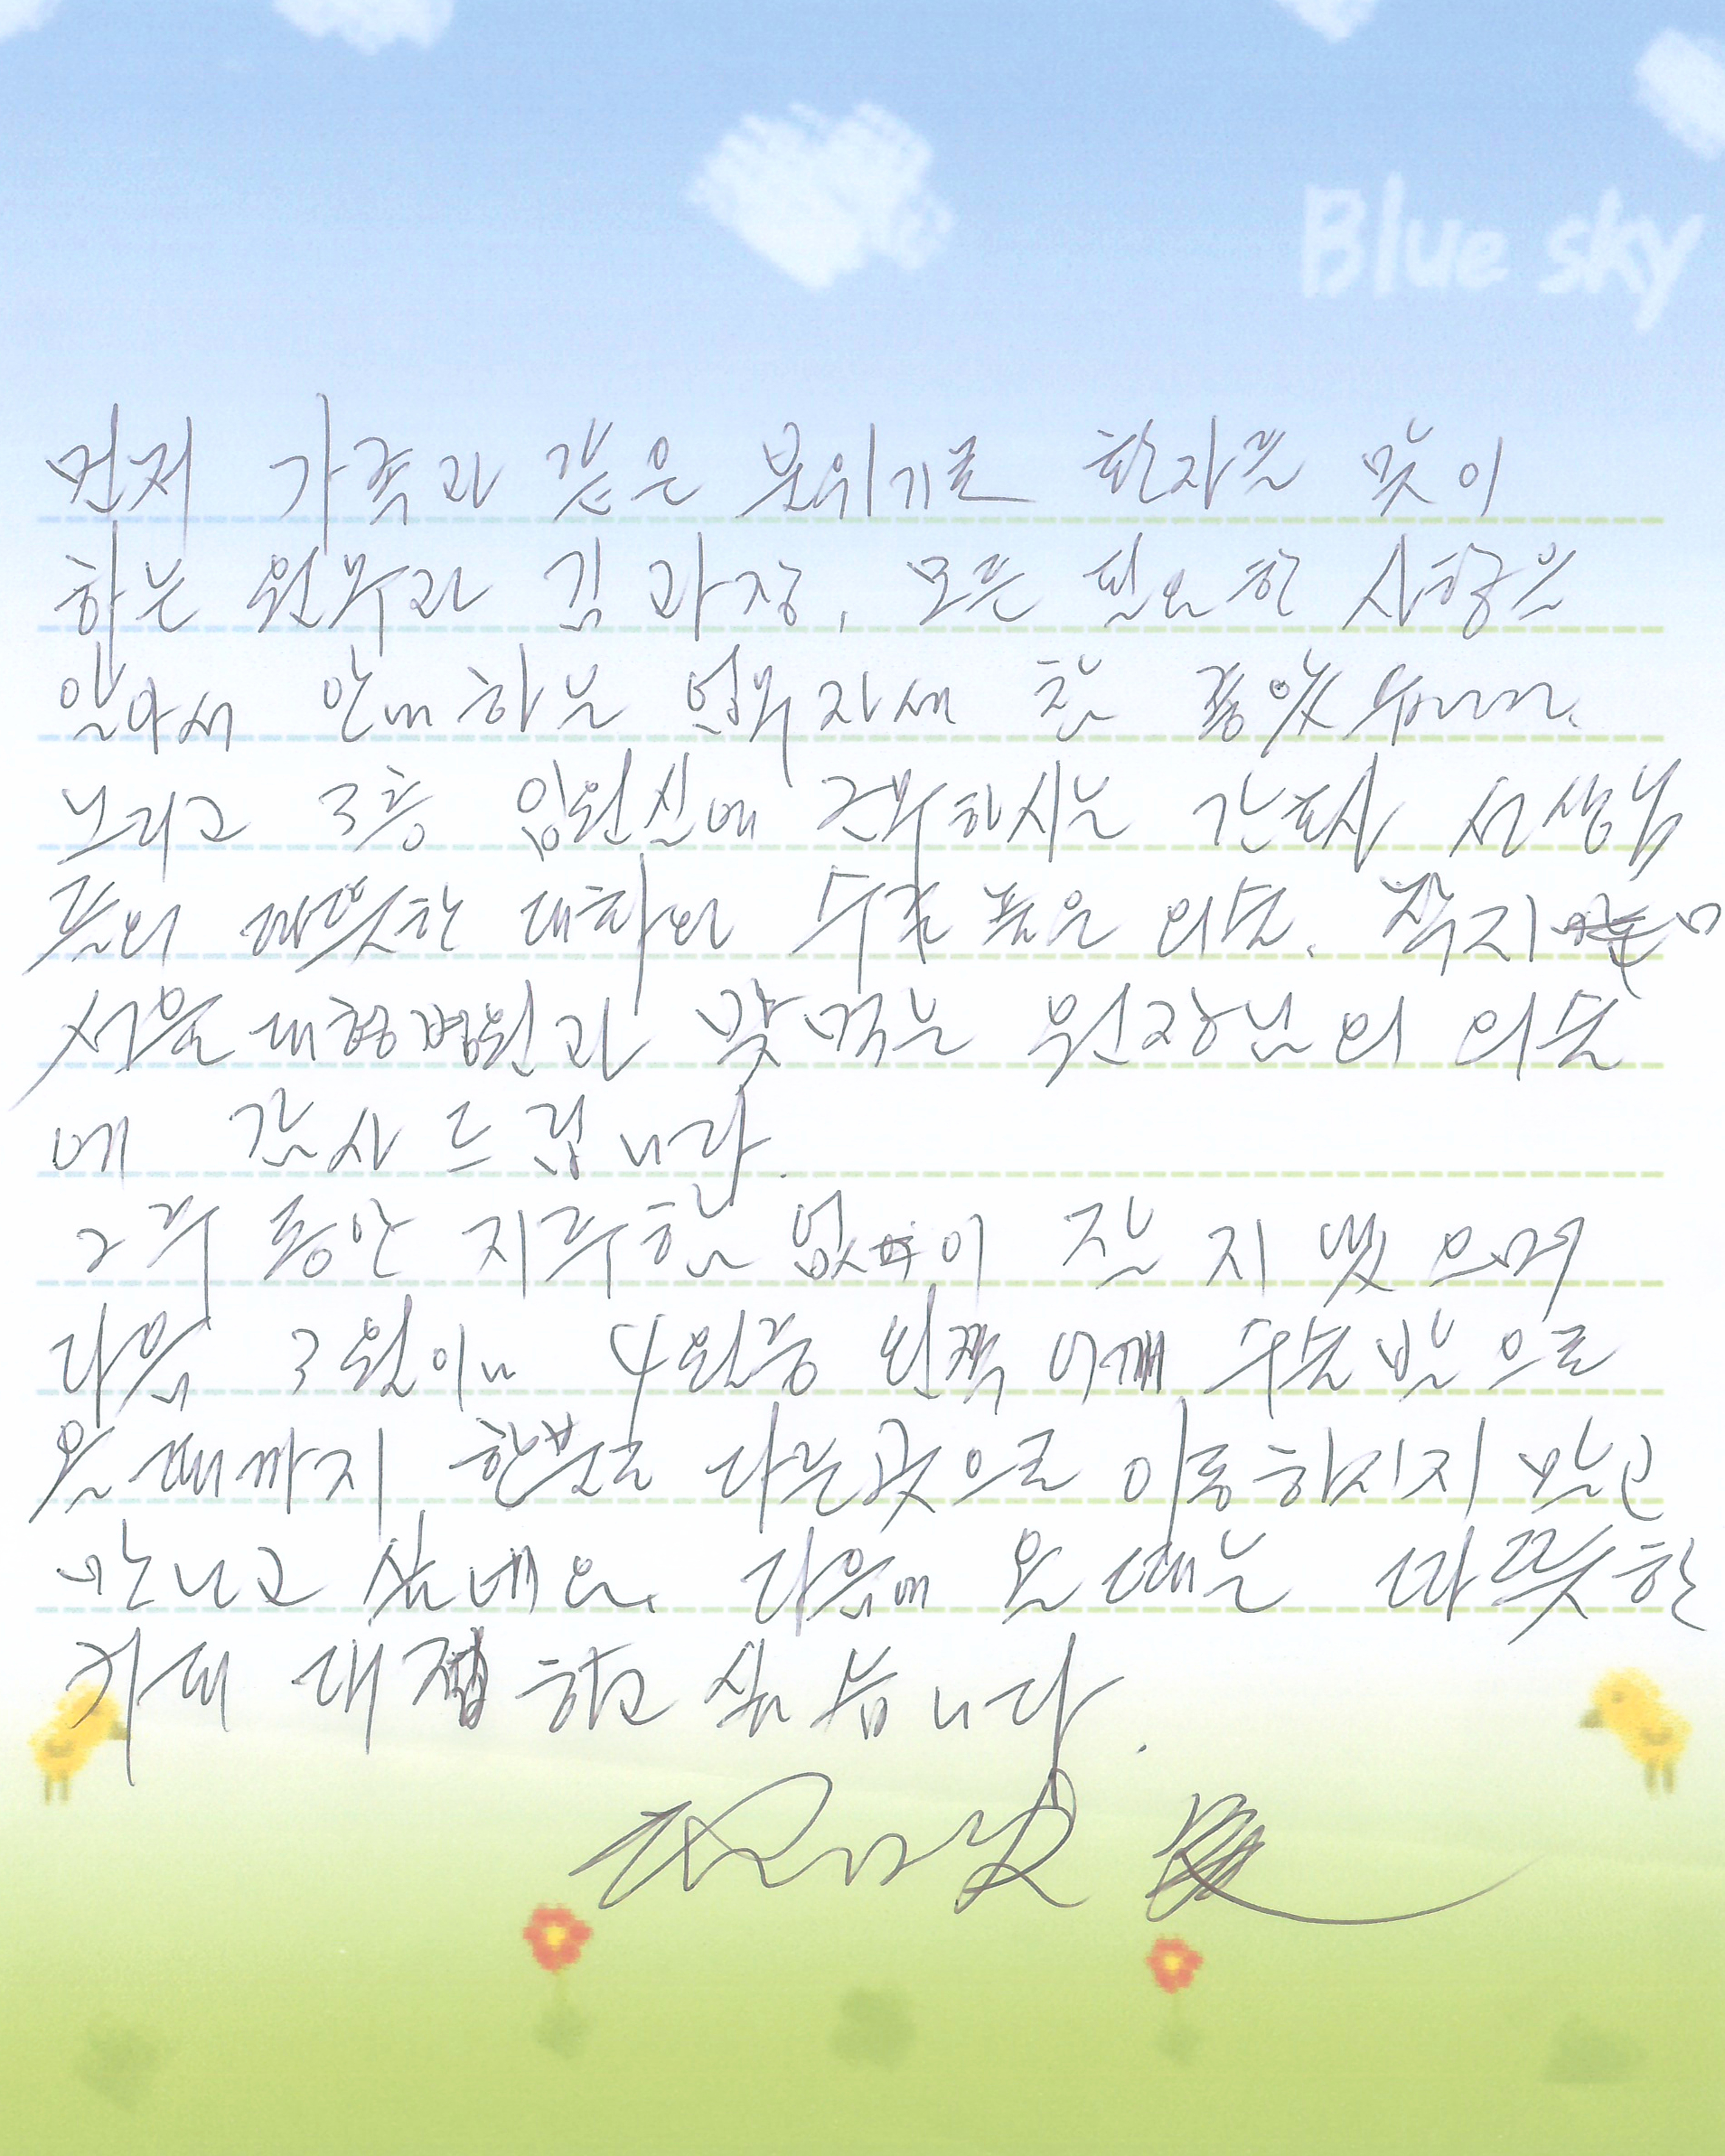 Blue sky
먼저 가족과 같은 분위기로 환자를 맞이
하는 원무과 김 과장, 모든 필요한 사항을
알아서 안내하는 업무자세 참 좋았습니다.
그리고 3층 입원실에 근무하시는 간호사 선생님
들의 따뜻한 대화와 수준 높은 의술. 작지만
서울대형병원과 맞먹는 원장님의 의술
에 감사드립니다.
2주 동안 지루함 없이 잘 지냈으며
다음 3월이나 4월중 왼쪽 어깨 수술받으로
올때까지 한분도 다른곳으로 이동하시지 말고
만나고 싶네요. 다음에 올때는 따뜻한
커피 대접하고 싶습니다.